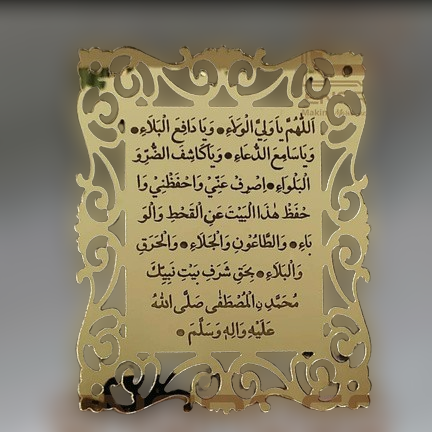 اَللّٰهُمَّ يَا وَلِيَّ الْوَلَاءِ ۞ وَيَا دَافِعَ الْبَلَاءِ ۞
وَيَا سَامِعَ الدُّعَاءِ ۞ وَيَا كَاشِفَ الضُّرِّ وَ
الْبَلْوَاءِ ۞ اِصْرِفْ عَنِّيْ وَاحْفَظْنِيْ وَا
حْفَظْ هٰذَا الْبَيْتَ عَنِ الْقَحْطِ وَالْوَ
بَاءِ ۞ وَالطَّاعُوْنِ وَالْجَلَاءِ ۞ وَالْحَرَقِ
وَالْبَلَاءِ ۞ بِحَقِّ شَرَفِ بَيْتِ نَبِيِّكَ
مُحَمَّدِ ࣙالْمُصْطَفٰى صَلَّى اللّٰهُ
عَلَيْهِ وَاٰلِهٖ وَسَلَّمَ ۞